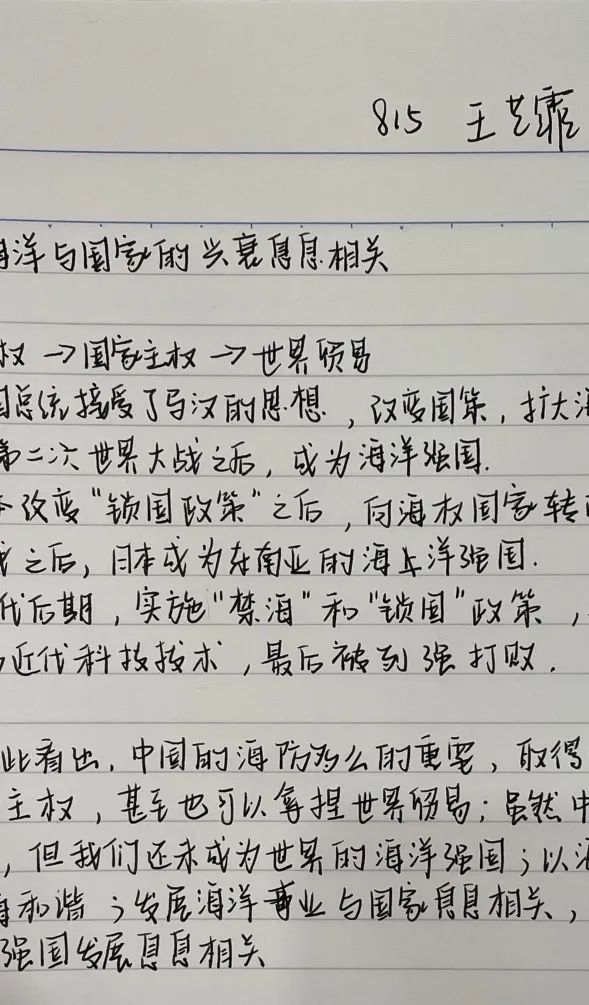 815 王艺霏
海洋与国家的兴衰息息相关
权→国家主权→世界贸易
国总统接受了马汉的思想,改变国策,扩大海
第二次世界大战之后,成为海洋强国.
本改变"锁国政策"之后,向海权国家转
之后,日本成为东南亚的海上洋强国.
代后期,实施"禁海"和"锁国"政策,
近代科技技术,最后被列强打败.
此看出,中国的海防多么的重要,取得
主权,甚至也可以拿捏世界贸易;虽然中
,但我们还未成为世界的海洋强国;以海
海和谐;发展海洋事业与国家息息相关,
强国发展息息相关